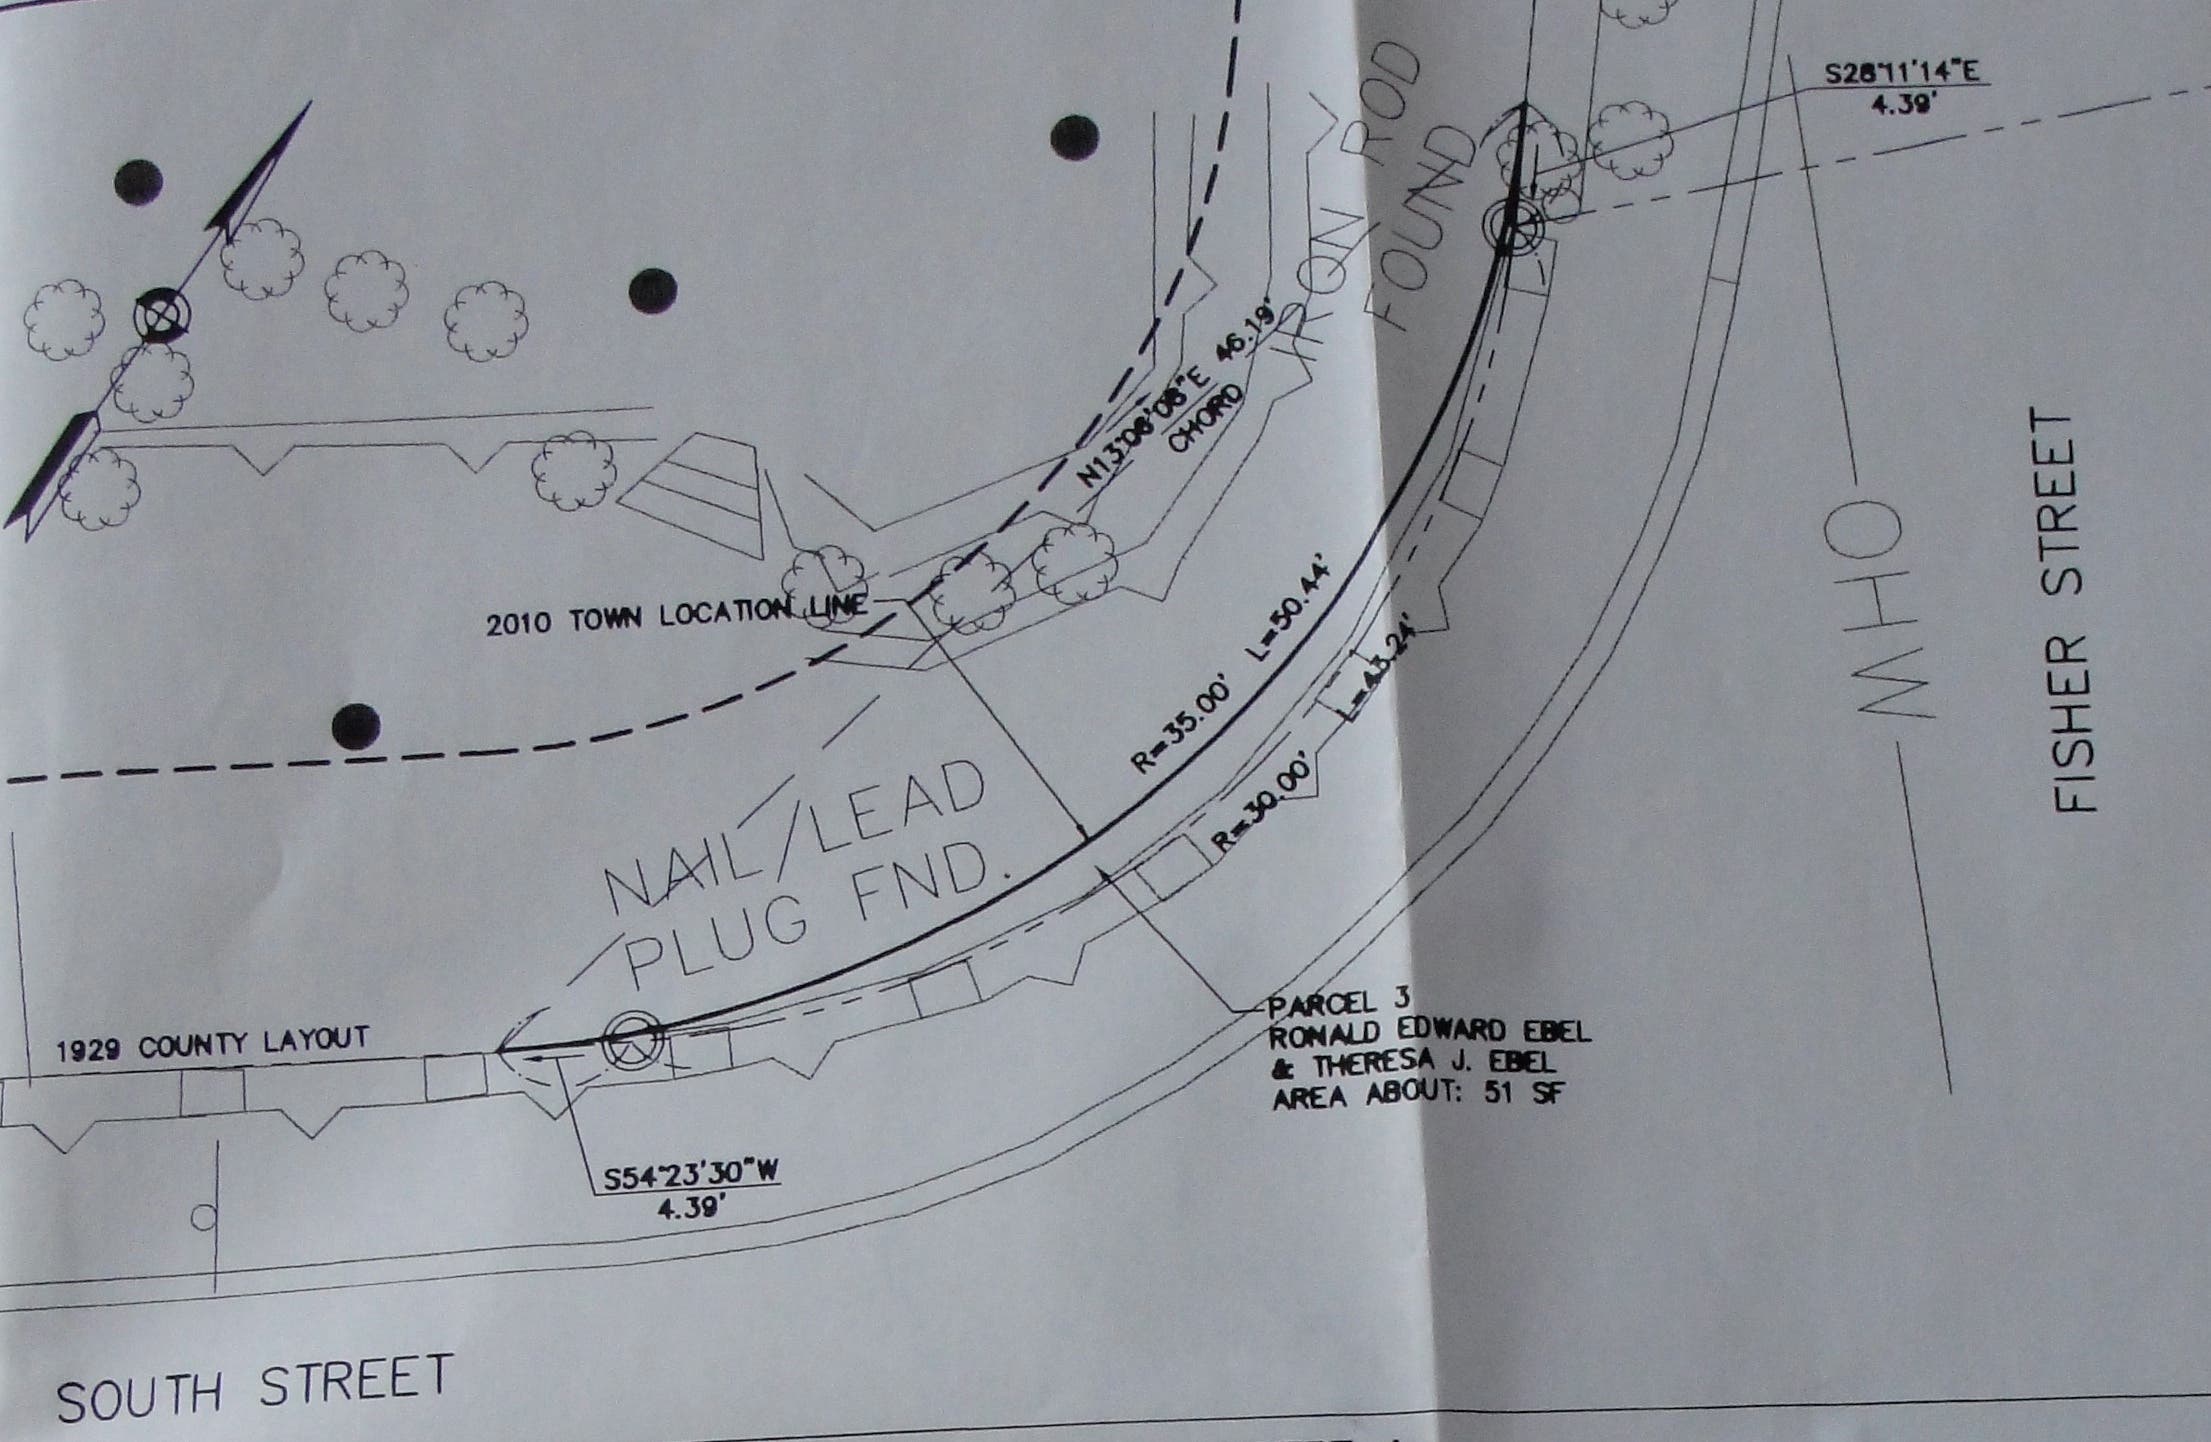 S28°11'14"E
4.39'
IRON ROD
FOUND
N13°06'08"E 46.19'
CHORD
FISHER STREET
OHW
2010 TOWN LOCATION LINE
R=35.00' L=50.44'
R=30.00' L=43.24'
NAIL/LEAD
PLUG FND.
1929 COUNTY LAYOUT
PARCEL 3
RONALD EDWARD EBEL
& THERESA J. EBEL
AREA ABOUT: 51 SF
S54°23'30"W
4.39'
SOUTH STREET